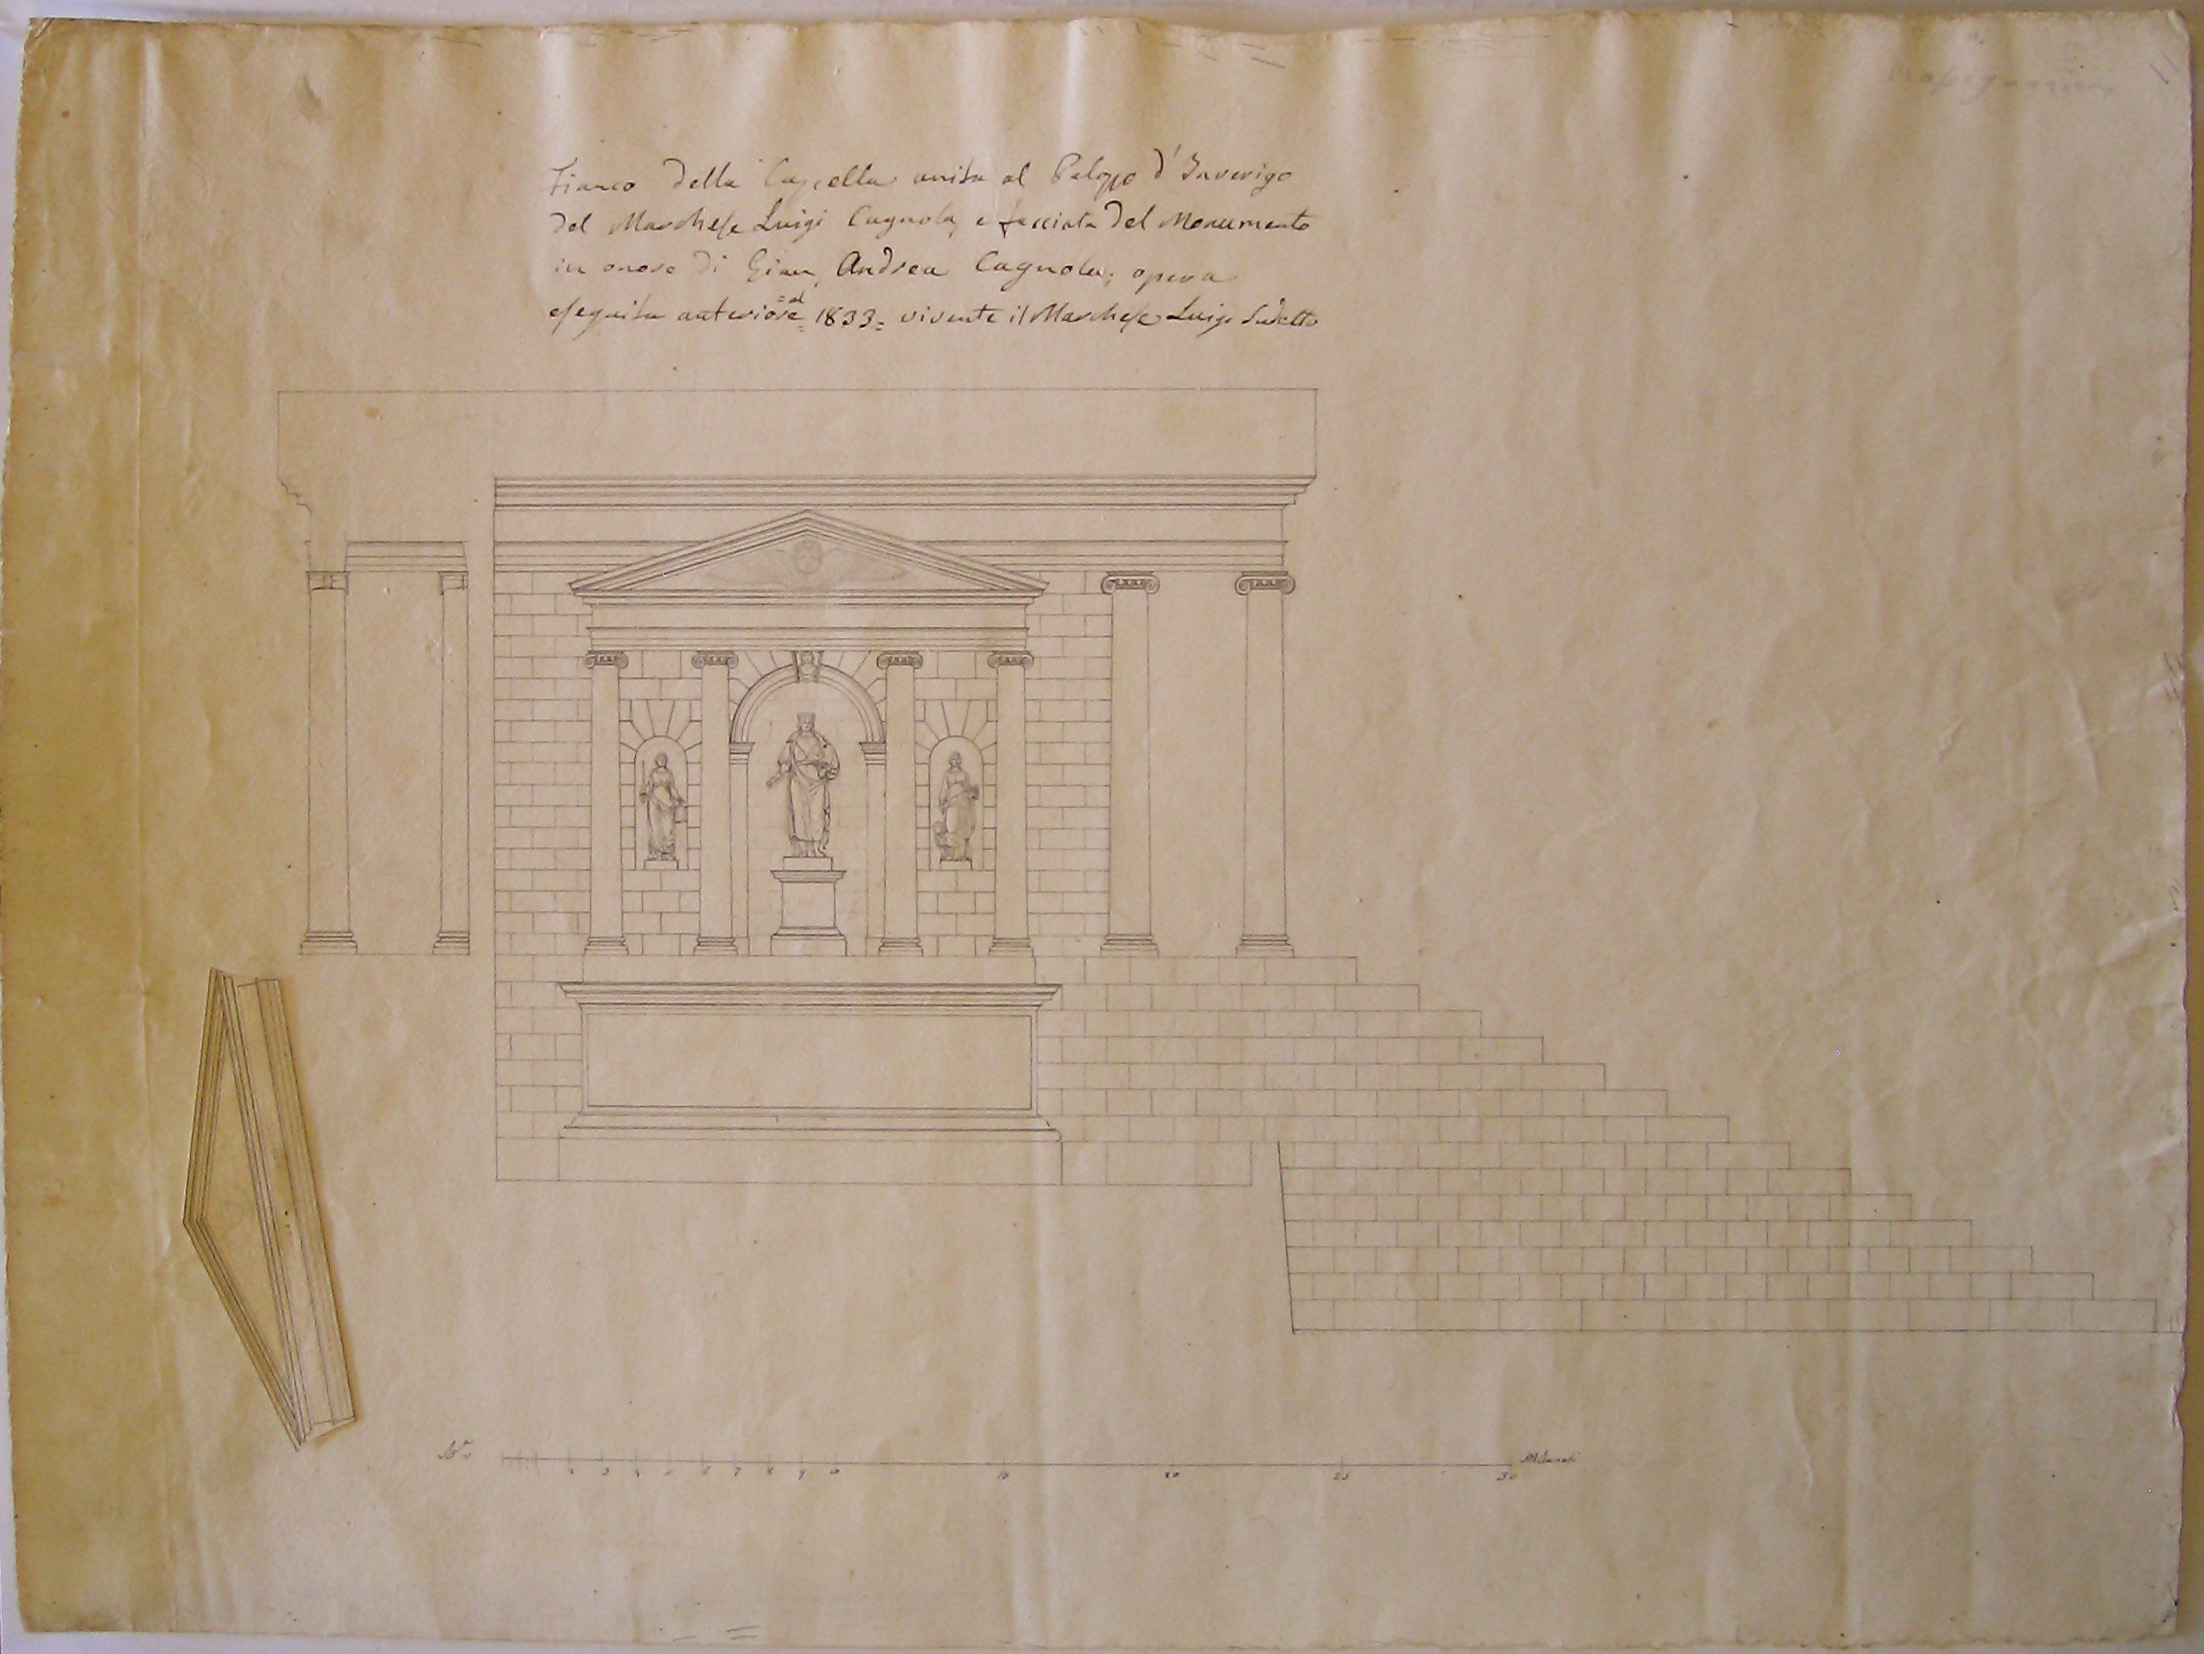 Fianco della Cappella unita al Palazzo d'Inverigo
del Marchese Luigi Cagnola, e facciata del Monumento
in onore di Gian Andrea Cagnola; opera
eseguita anteriore =al= 1833= vivente il Marchese Luigi sudetto
2 3 4 5 6 7 8 9 10 15 20 25 30 Milanesi